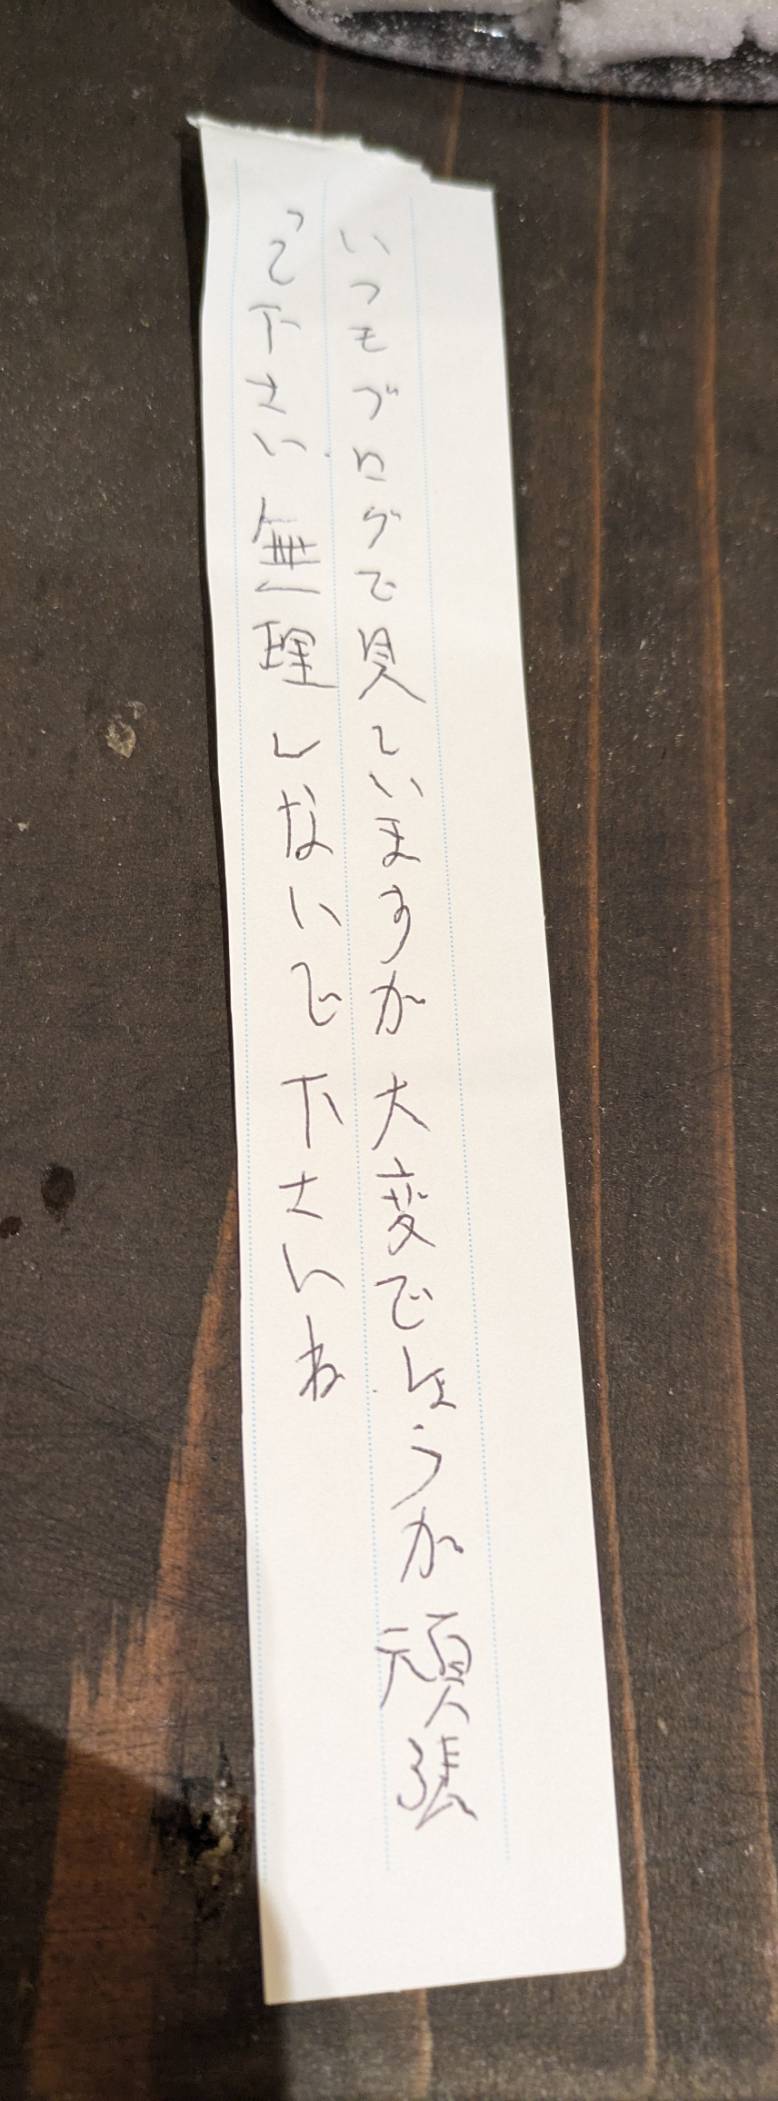 いつもブログで見ていますが大変でしょうが頑張
って下さい無理しないで下さいね